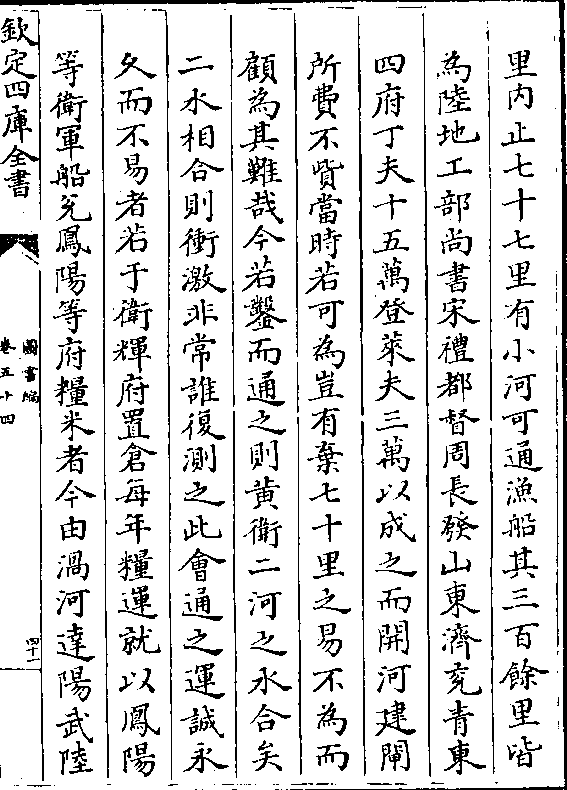 里内止七十七里有小河可通漁船其三百餘里皆
為陸地工部尚書宋禮都督周長發山東濟兖青東
四府丁夫十五萬登萊夫三萬以成之而開河建閘
所費不貲當時若可為豈有棄七十里之易不為而
顧為其難哉今若鑿而通之則黄衛二河之水合矣
二水相合則衝激非常誰復測之此會通之運誠永
久而不易者若于衛輝府置倉每年糧運就以鳳陽
等衛軍船兊鳳陽等府糧米者今由渦河達陽武陸
欽定四庫全書
圖書編
卷五十四
四十一